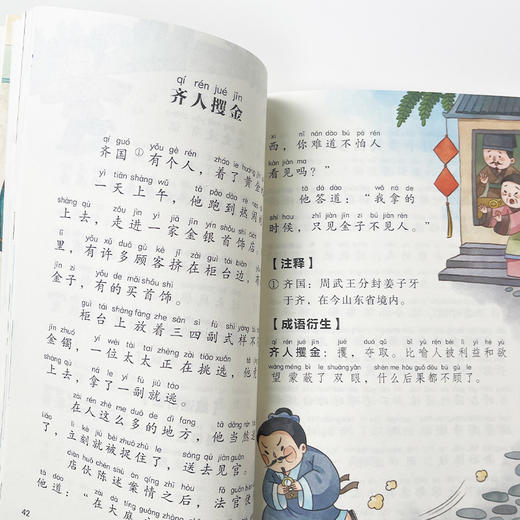 qí rén jué jīn
齐人攫金
qí guó yǒu gè rén zháo le huáng
齐国①有个人，着了黄
yì tiān shàng wǔ tā pǎo dào rè
一天上午，他跑到热闹
shàng qù zǒu jìn yì jiā jīn yín shǒu shi diàn
上去，走进一家金银首饰店。
lǐ yǒu xǔ duō gù kè jǐ zài guì tái biān
里，有许多顾客挤在柜台边，
jīn zi yǒu de mǎi shǒu shi
金子，有的买首饰。
guì tái shàng fàng zhe sān sì fù shì yàng
柜台上放着三四副式样不
jīn zhuó yí wèi tài tai zhèng zài tiāo xuǎn tā
金镯，一位太太正在挑选，他
shàng qù ná le yí fù jiù táo
上去，拿了一副就逃。
zài rén zhè me duō de dì fang tā dāng rán
在人这么多的地方，他当然
liǎo lì kè jiù bèi zhuō zhù le sòng qù jiàn guān
了，立刻就被捉住了，送去见官。
diàn huǒ chén shù àn qíng zhī hòu fǎ guān
店伙陈述案情之后，法官
tā dào zài dà tíng
他道：“在大庭
42
xi nǐ nán dào bú pà rén
西，你难道不怕人
kàn jiàn ma
看见吗？”
tā dá dào wǒ ná de
他答道：“我拿的
shí hou zhǐ jiàn jīn zi bú jiàn rén
时候，只见金子不见人。
【注释】
①齐国：周武王分封姜子牙
于齐，在今山东省境内。
【成语衍生】
qí rén jué jīn jué duó qǔ bǐ yù rén bèi lì yì hé yù
齐人攫金：攫，夺取。比喻人被利益和欲
wàng méng bì le shuāng yǎn shén me hòu guǒ dōu bú gù le
望蒙蔽了双眼，什么后果都不顾了。